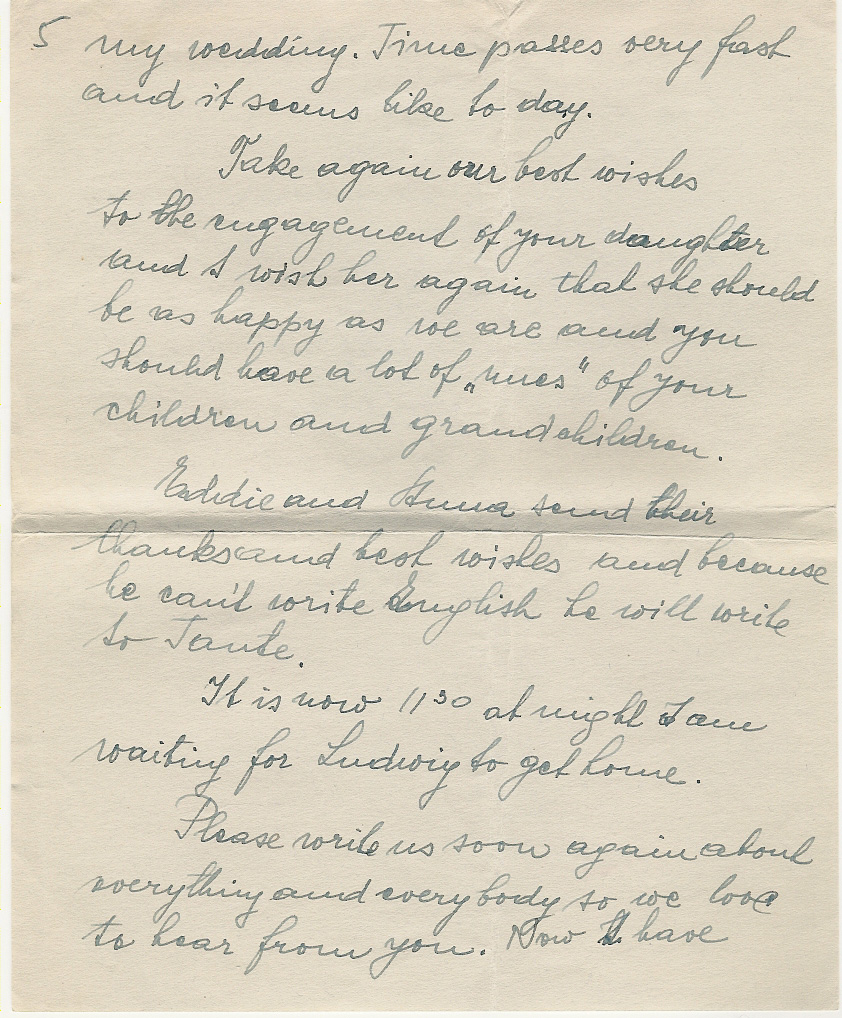 5 my wedding. Time passes very fast
and it seems like to day.
Take again our best wishes
to the engagement of your daughter
and I wish her again that she should
be as happy as we are and you
should have a lot of „nues“ of your
children and grandchildren.
Eddie and Anna send their
thanks and best wishes and because
he can't write English he will write
to Tante.
It is now 11³⁰ at night I am
waiting for Ludwig to get home.
Please write us soon again about
everything and everybody so we love
to hear from you. Now I have